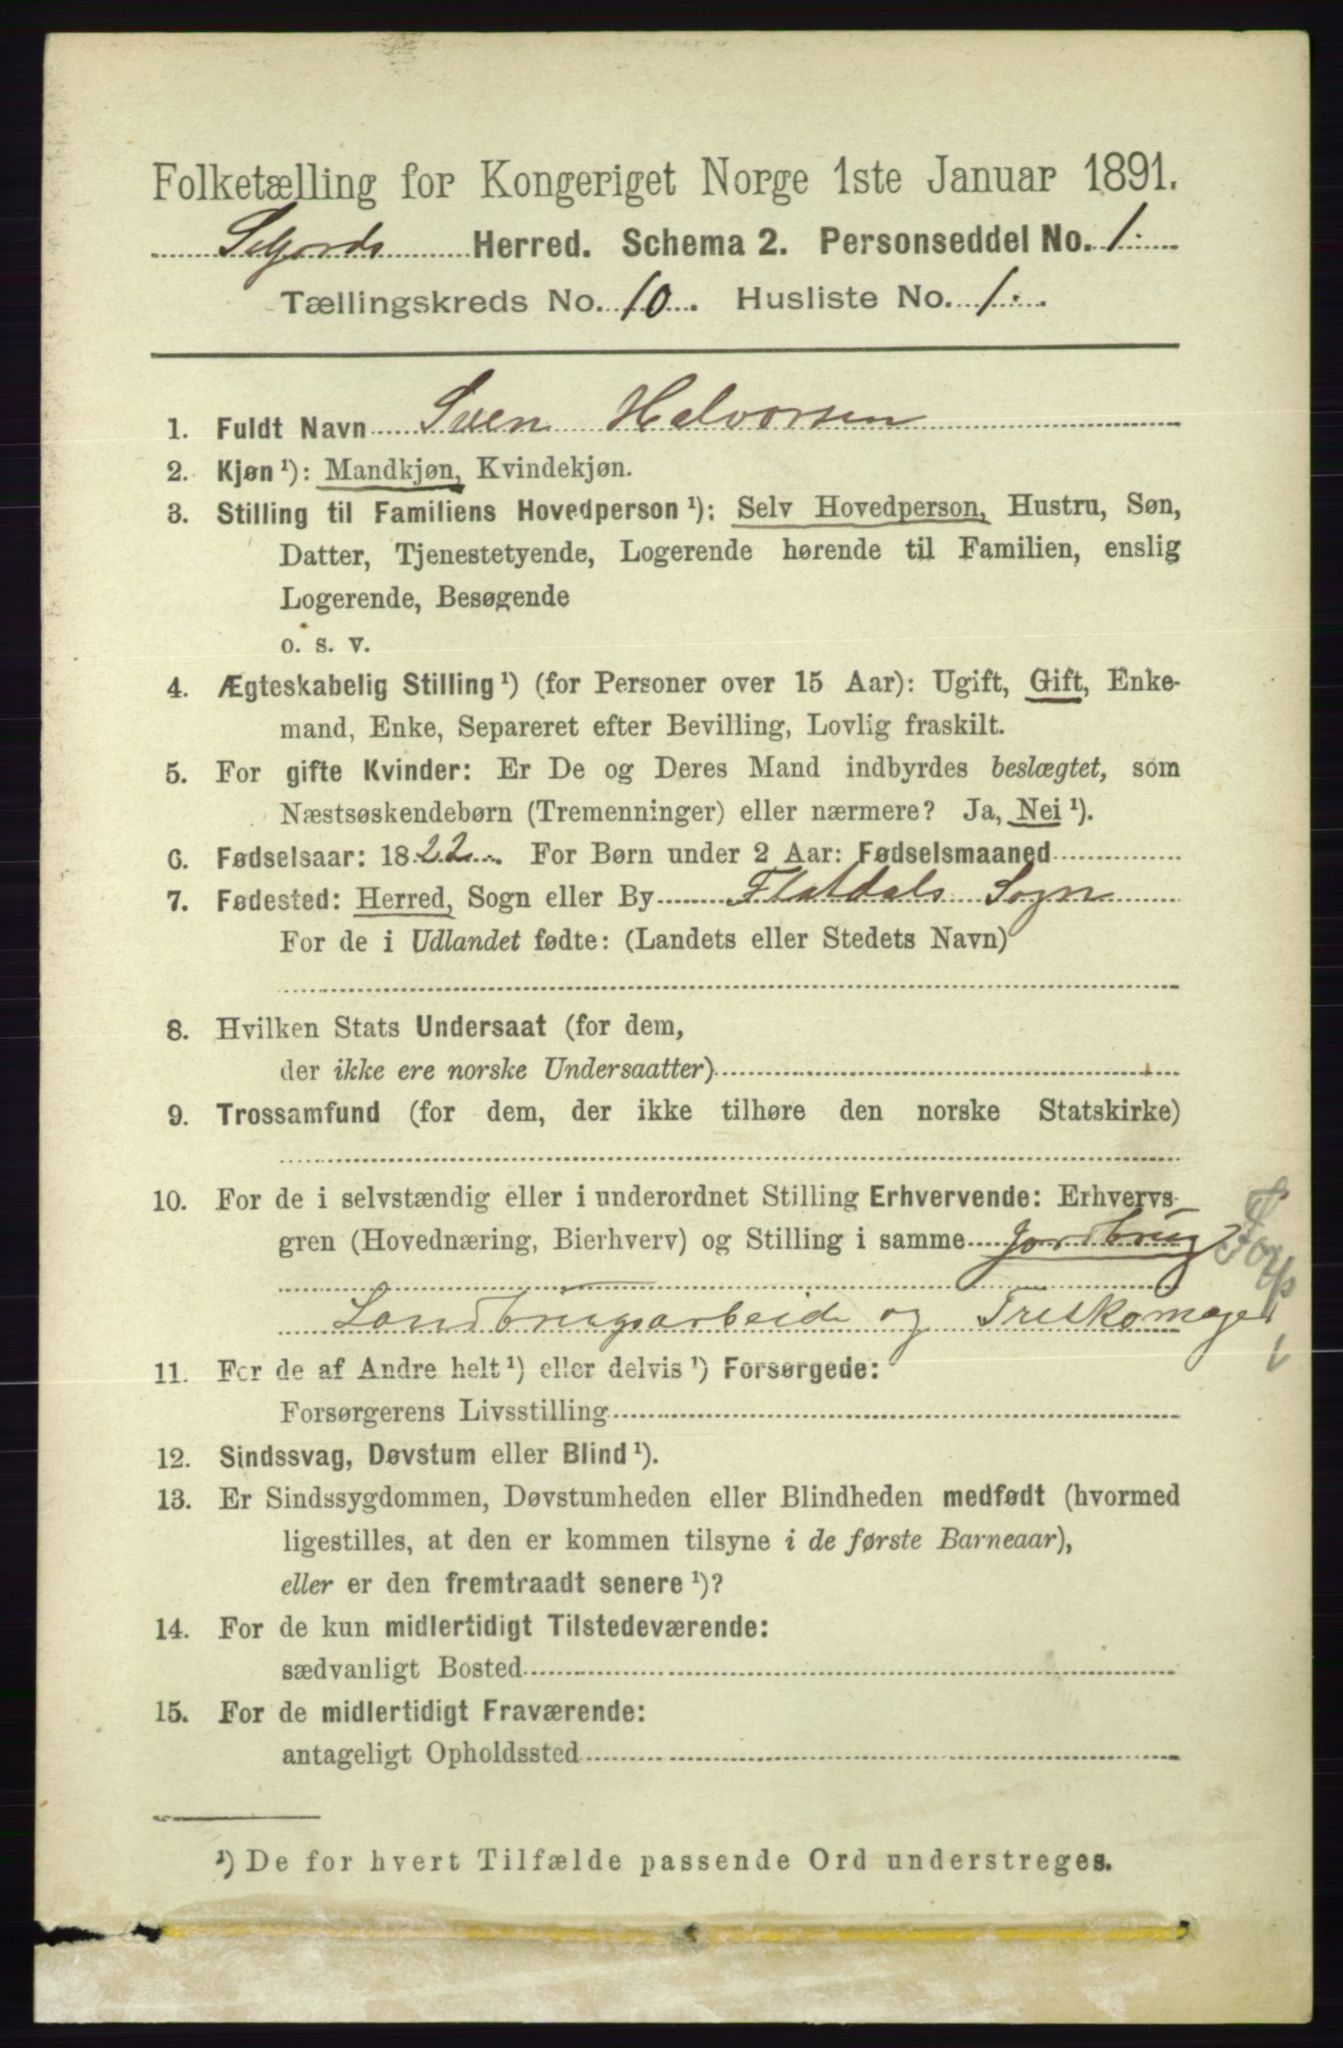 Folketælling for Kongeriget Norge 1ste Januar 1891.
Seljords Herred. Schema 2. Personseddel No. 1.
Tællingskreds No. 10. Husliste No. 1.
1. Fuldt Navn Sven Halvorsen
2. Kjøn¹): Mandkjøn, Kvindekjøn.
3. Stilling til Familiens Hovedperson¹): Selv Hovedperson, Hustru, Søn,
Datter, Tjenestetyende, Logerende hørende til Familien, enslig
Logerende, Besøgende
o. s. v.
4. Ægteskabelig Stilling¹) (for Personer over 15 Aar): Ugift, Gift, Enke-
mand, Enke, Separeret efter Bevilling, Lovlig fraskilt.
5. For gifte Kvinder: Er De og Deres Mand indbyrdes beslægtet, som
Næstsøskendebørn (Tremenninger) eller nærmere? Ja, Nei¹).
6. Fødselsaar: 1822. For Børn under 2 Aar: Fødselsmaaned
7. Fødested: Herred, Sogn eller By Flatdals Sogn
For de i Udlandet fødte: (Landets eller Stedets Navn)
8. Hvilken Stats Undersaat (for dem,
der ikke ere norske Undersaatter)
9. Trossamfund (for dem, der ikke tilhøre den norske Statskirke)
10. For de i selvstændig eller i underordnet Stilling Erhvervende: Erhvervs-
gren (Hovednæring, Bierhverv) og Stilling i samme Jordbrug
Landbrugsarbeide og Treskomager
11. For de af Andre helt¹) eller delvis¹) Forsørgede:
Forsørgerens Livsstilling
12. Sindssvag, Døvstum eller Blind¹).
13. Er Sindssygdommen, Døvstumheden eller Blindheden medfødt (hvormed
ligestilles, at den er kommen tilsyne i de første Barneaar),
eller er den fremtraadt senere¹)?
14. For de kun midlertidigt Tilstedeværende:
sædvanligt Bosted
15. For de midlertidigt Fraværende:
antageligt Opholdssted
¹) De for hvert Tilfælde passende Ord understreges.